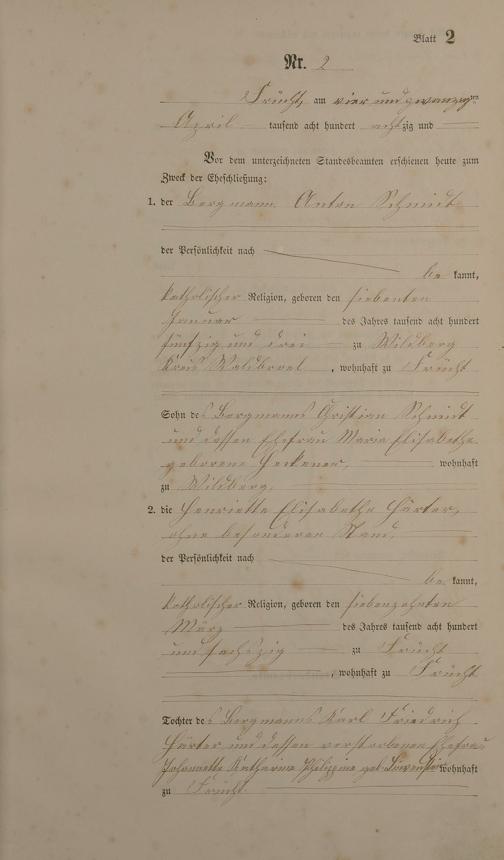 Blatt 2
Nr. 2
Frücht, am vier und zwanzigten
April tausend acht hundert achtzig und
Vor dem unterzeichneten Standesbeamten erschienen heute zum
Zweck der Eheschließung:
1. der Bergmann Anton Schmidt
der Persönlichkeit nach
be kannt,
katholischer Religion, geboren den siebenten
Januar des Jahres tausend acht hundert
fünfzig und drei zu Wildberg
Kreis Waldbroel, wohnhaft zu Frücht
Sohn des Bergmanns Christian Schmidt
und dessen Ehefrau Maria Elisabethe
geborene wohnhaft
zu Wildberg.
2. die Henriette Elisabethe Härter,
ohne besonderen Stand,
der Persönlichkeit nach
be kannt,
katholischer Religion, geboren den siebenzehnten
März des Jahres tausend acht hundert
und sechszig zu Frücht
, wohnhaft zu Frücht
Tochter des Bergmanns Karl Friedrich
Härter und dessen verstorbenen Ehefrau
Johannette Katharine Philippine geb. wohnhaft
zu Frücht.